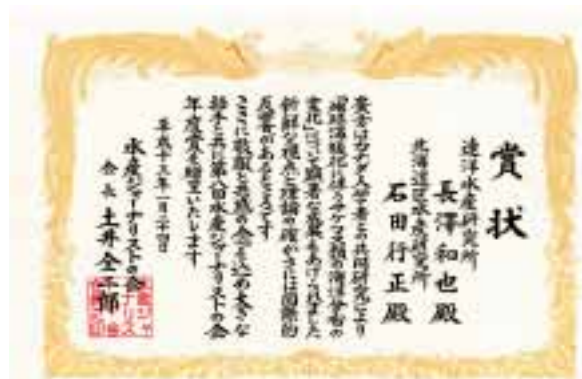 賞状
遠洋水産研究所
長澤和也殿
北海道区水産研究所
石田行正殿
貴方はカナダ人学者との共同研究により
「地球温暖化に伴うサケマス類の海洋分布の
変化」について顕著な業績をあげられました
斬新な視点と理論の確かさには国際的
反響のあるところです
ここに敬服と共感の念を込め大きな
拍手と共に第八回水産ジャーナリストの会
年度賞を贈呈いたします
平成十三年一月二十四日
水産ジャーナリストの会
会長 土井全二郎